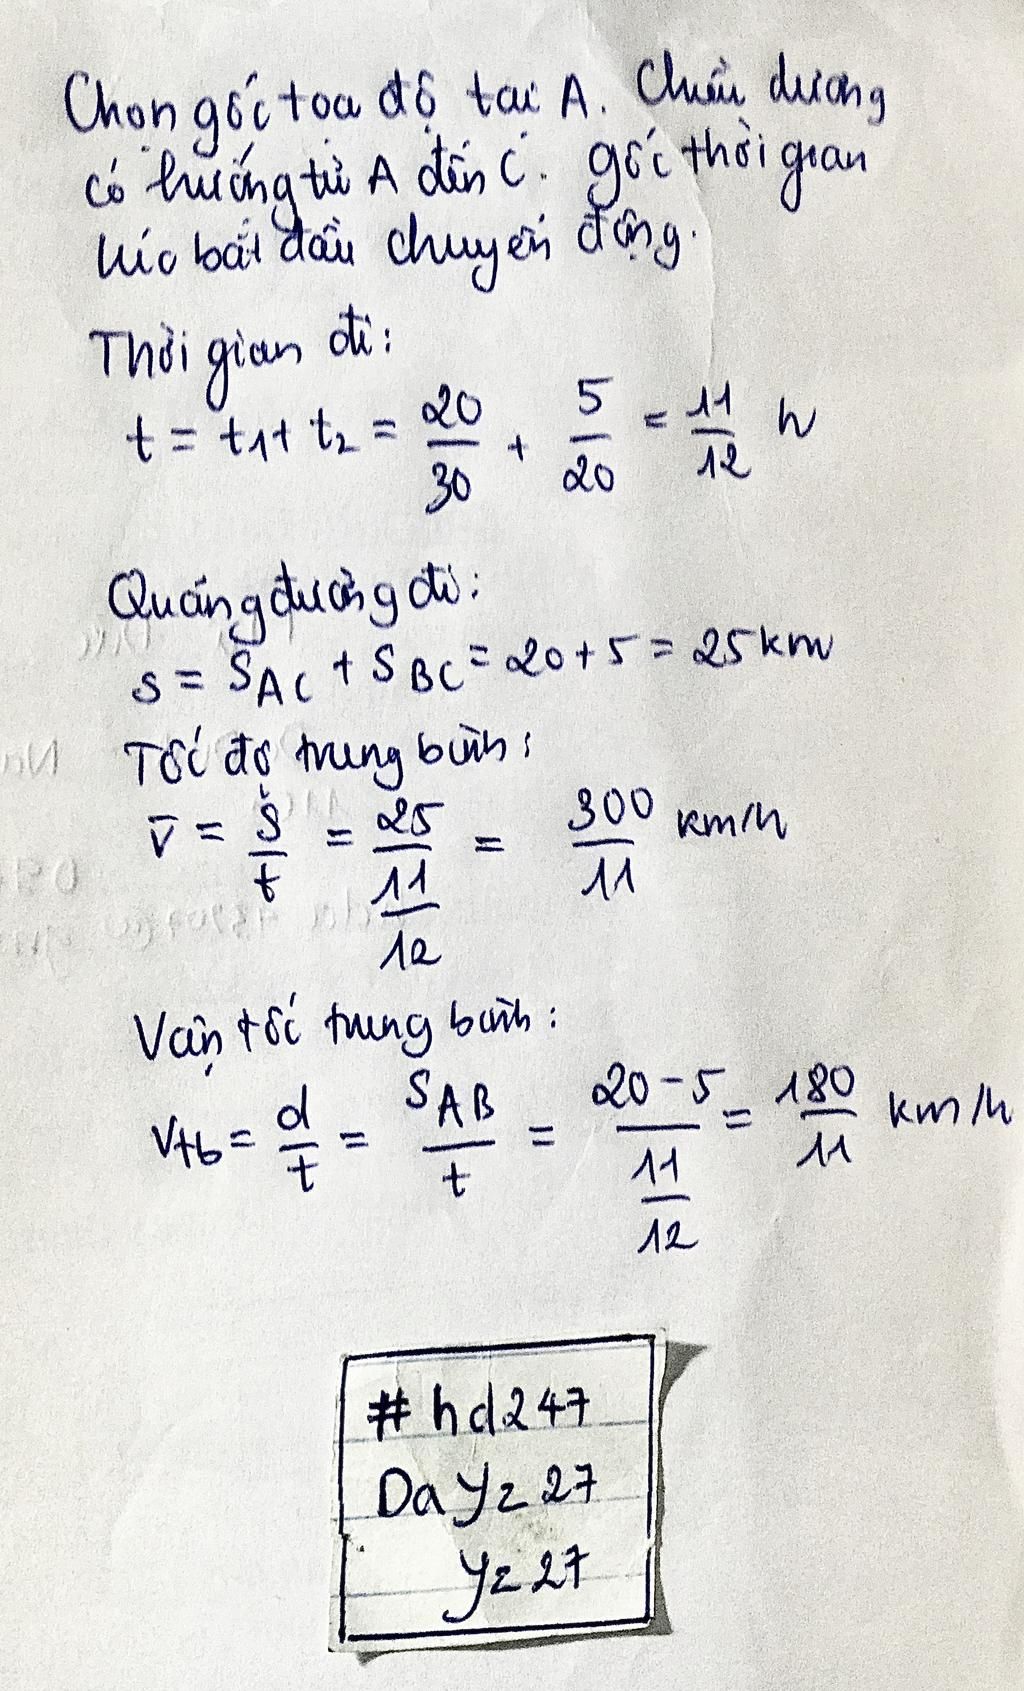 Chọn gốc toạ độ tại A. Chiều dương
có hướng từ A đến C. gốc thời gian
lúc bắt đầu chuyển động.
Thời gian đi:
t = t1 + t2 = 20/30 + 5/20 = 11/12 h
Quãng đường đi:
s = SAC + SBC = 20 + 5 = 25 km
Tốc độ trung bình:
v̄ = s/t = 25/(11/12) = 300/11 km/h
Vận tốc trung bình:
vtb = d/t = SAB/t = (20 - 5)/(11/12) = 180/11 km/h
# hd247
Da yz 27
yz 27